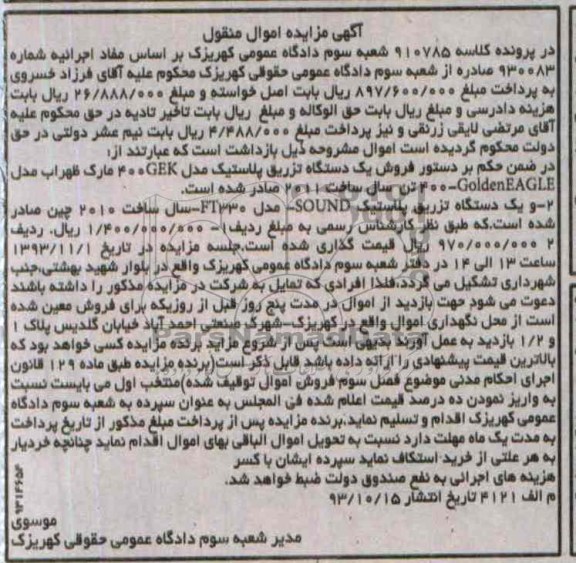 آگهی مزایده اموال منقول
در پرونده کلاسه ۹۱۰۷۸۵ شعبه سوم دادگاه عمومی کهریزک بر اساس مفاد اجرائیه شماره
۹۳۰۰۸۳ صادره از شعبه سوم دادگاه عمومی حقوقی کهریزک محکوم علیه آقای فرزاد خسروی
به پرداخت مبلغ ۸۹۷/۶۰۰/۰۰۰ ریال بابت اصل خواسته و مبلغ ۲۶/۸۸۸/۰۰۰ ریال بابت
هزینه دادرسی و مبلغ ریال بابت حق الوکاله و مبلغ  ریال بابت تاخیر تادیه در حق محکوم علیه
آقای مرتضی لایقی زرنقی و نیز پرداخت مبلغ ۴/۴۸۸/۰۰۰ ریال بابت نیم عشر دولتی در حق
دولت محکوم گردیده است اموال مشروحه ذیل بازداشت است که عبارتند از:
در ضمن حکم بر دستور فروش یک دستگاه تزریق پلاستیک مدل ۴۰۰GEK مارک ظهراب مدل
GoldenEAGLE-۴۰۰ تن سال ساخت ۲۰۱۱ صادر شده است.
۲-و یک دستگاه تزریق پلاستیک SOUND- مدل FT۲۳۰-سال ساخت ۲۰۱۰ چین صادر
شده است.که طبق نظر کارشناس رسمی به مبلغ ردیف۱- ۱/۴۰۰/۰۰۰/۰۰۰ ریال. ردیف
۲ ۹۷۰/۰۰۰/۰۰۰ ریال قیمت گذاری شده است.جلسه مزایده در تاریخ ۱۳۹۳/۱۱/۱
ساعت ۱۳ الی ۱۴ در دفتر شعبه سوم دادگاه عمومی کهریزک واقع در بلوار شهید بهشتی،جنب
شهرداری تشکیل می گردد.فلذا افرادی که تمایل به شرکت در مزایده مذکور را داشته باشند
دعوت می شود جهت بازدید از اموال در مدت پنج روز قبل از روزیکه برای فروش معین شده
است از محل نگهداری اموال واقع در کهریزک-شهرک صنعتی احمد آباد خیابان گلدیس پلاک ۱
و ۱/۲ بازدید به عمل آورند بدیهی است پس از شروع مزاید برنده مزایده کسی خواهد بود که
بالاترین قیمت پیشنهادی را ارائه داده باشد قابل ذکر است(برنده مزایده طبق ماده ۱۲۹ قانون
اجرای احکام مدنی موضوع فصل سوم فروش اموال توقیف شده)منتخب اول می بایست نسبت
به واریز نمودن ده درصد قیمت اعلام شده فی المجلس به عنوان سپرده به شعبه سوم دادگاه
عمومی کهریزک اقدام و تسلیم نماید.برنده مزایده پس از پرداخت مبلغ مذکور از تاریخ پرداخت
به مدت یک ماه مهلت دارد نسبت به تحویل اموال الباقی بهای اموال اقدام نماید چنانچه خریدار
به هر علتی از خرید استکاف نماید سپرده ایشان با کسر
هزینه های اجرائی به نفع صندوق دولت ضبط خواهد شد.
م الف ۴۱۲۱ تاریخ انتشار ۹۳/۱۰/۱۵
موسوی
مدیر شعبه سوم دادگاه عمومی حقوقی کهریزک